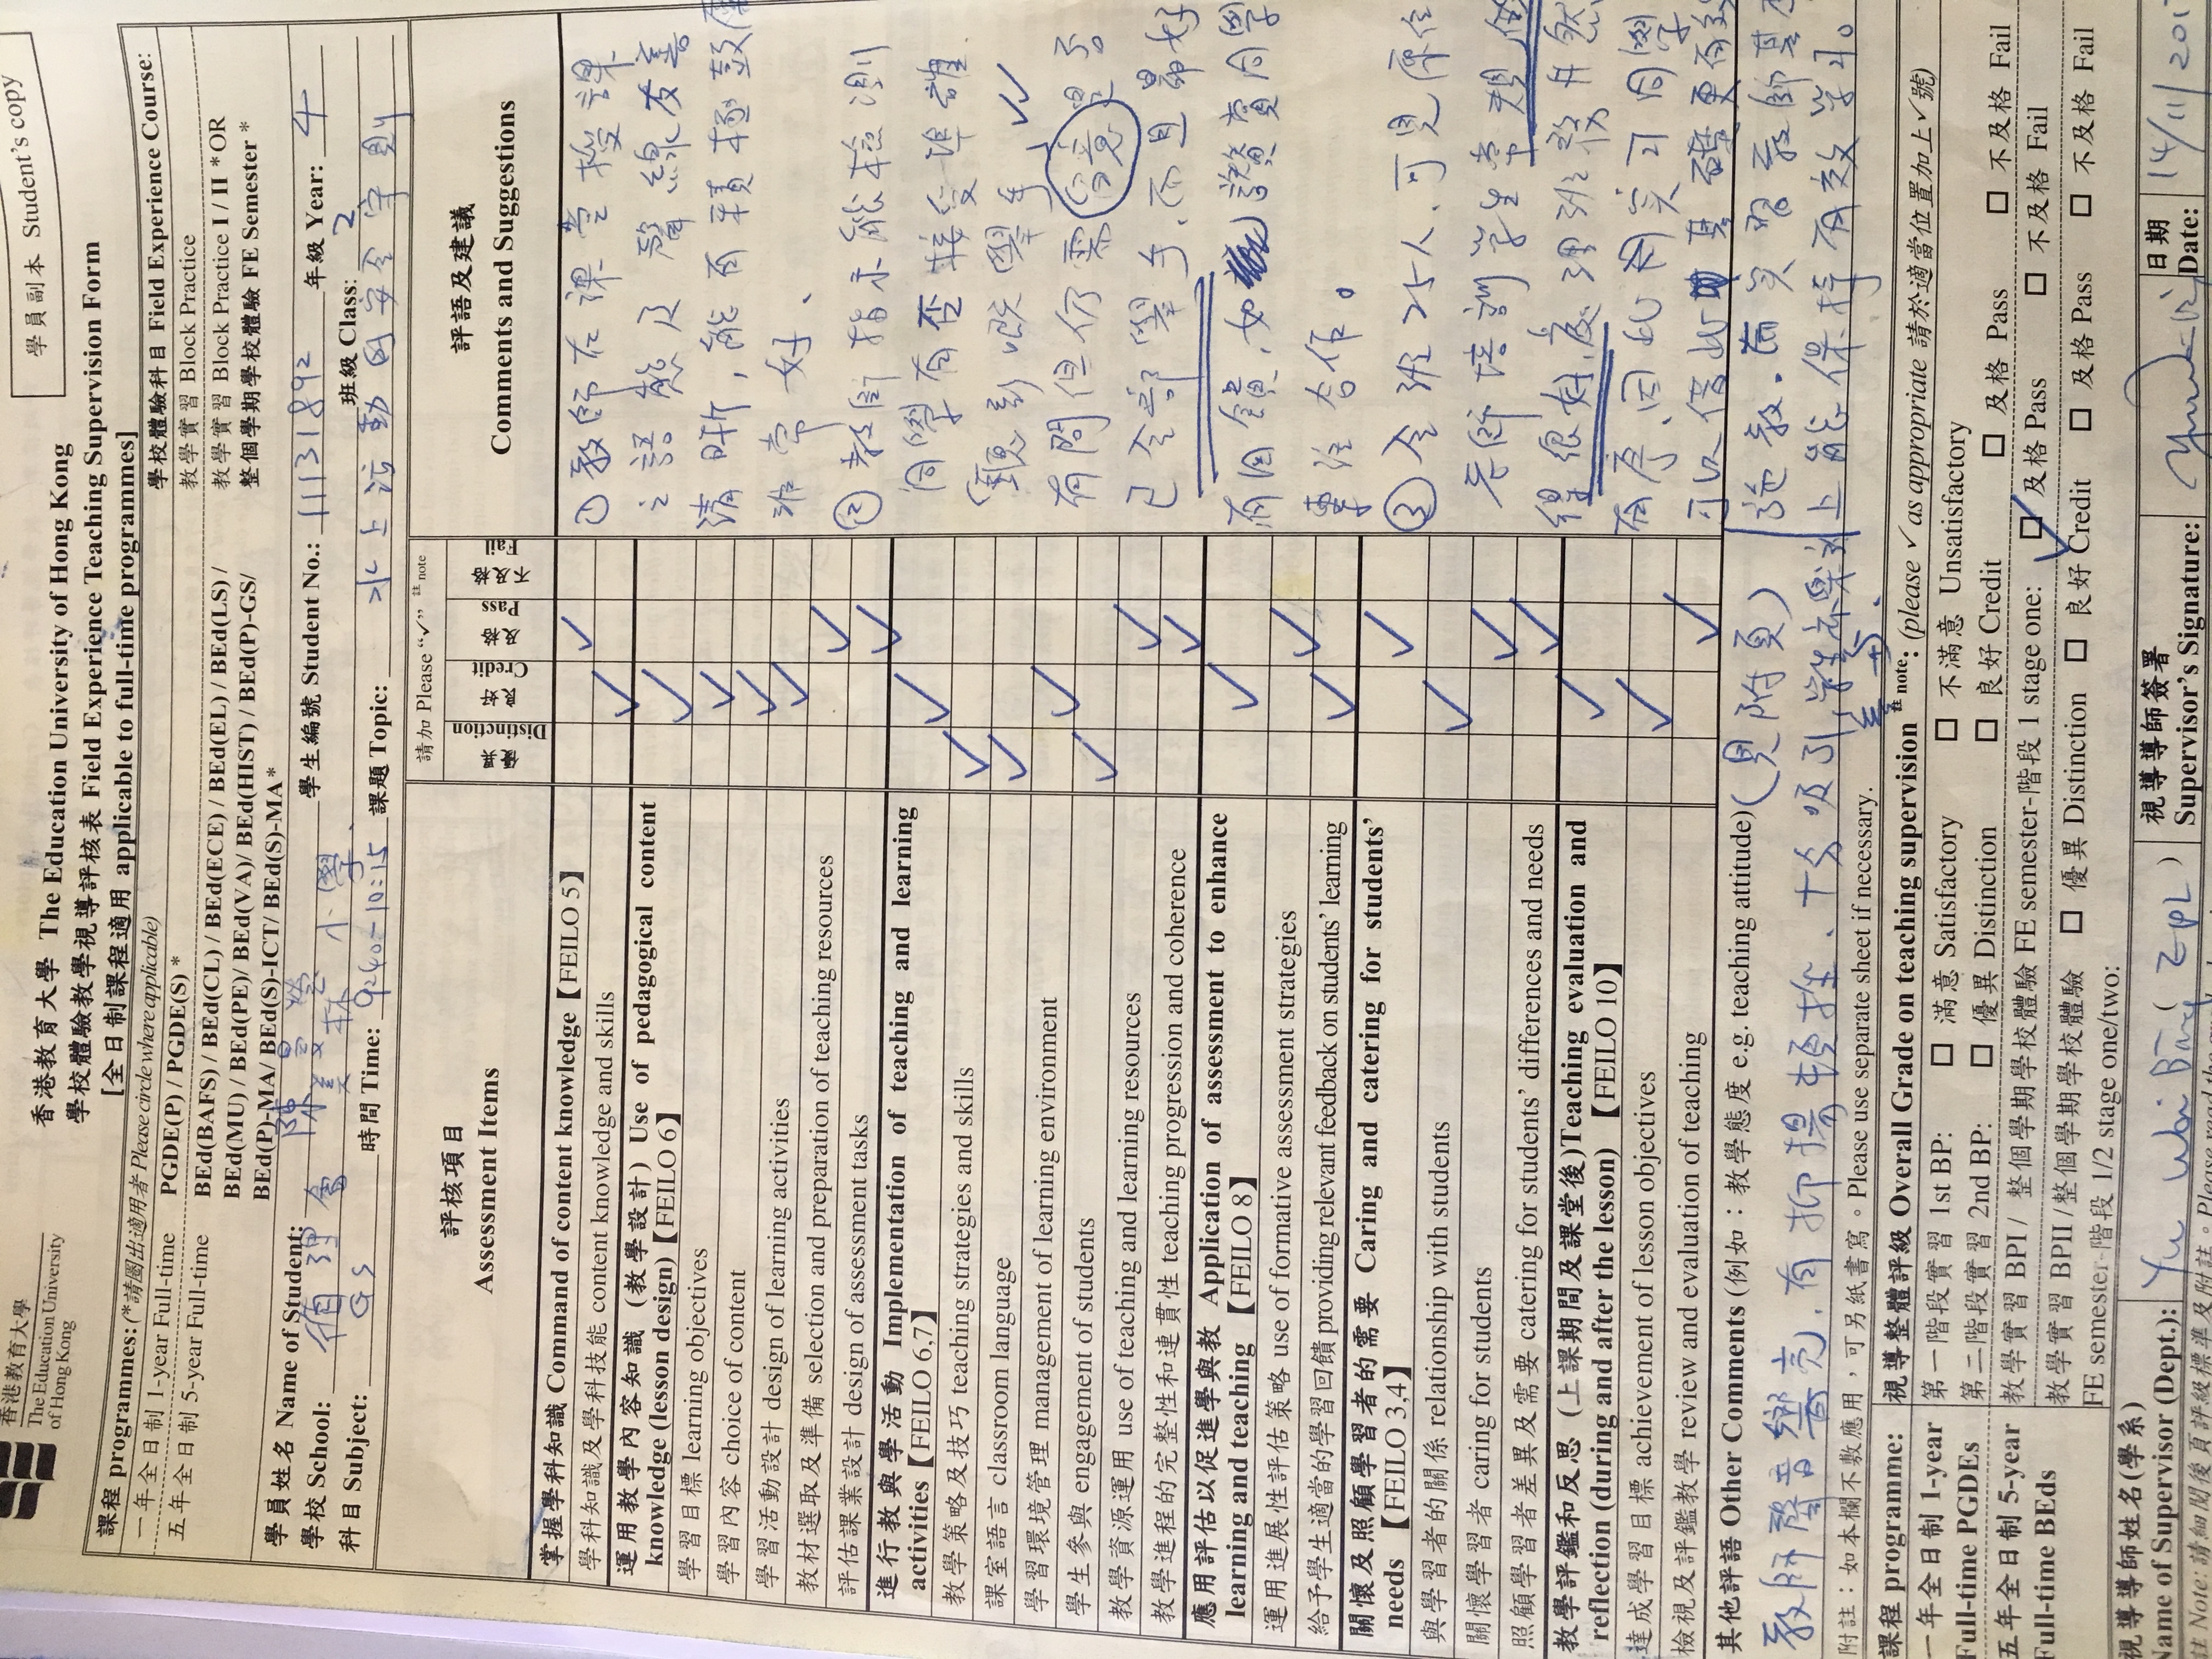 學員副本 Student's copy
香港教育大學
The Education University
of Hong Kong
香港教育大學 The Education University of Hong Kong
學校體驗教學視導評核表 Field Experience Teaching Supervision Form
[全日制課程適用 applicable to full-time programmes]
課程 programmes: (*請圈出適用者 Please circle where applicable)
一年全日制 1-year Full-time PGDE(P) / PGDE(S) *
五年全日制 5-year Full-time BEd(BAFS) / BEd(CL) / BEd(ECE) / BEd(EL) / BEd(LS) /
BEd(MU) / BEd(PE)/ BEd(VA)/ BEd(HIST) / BEd(P)-GS/
BEd(P)-MA/ BEd(S)-ICT/ BEd(S)-MA*
學校體驗科目 Field Experience Course:
教學實習 Block Practice
教學實習 Block Practice I / II *OR
整個學期學校體驗 FE Semester *
學員姓名 Name of Student: 學生編號 Student No.: 11131892 年級 Year: 4
學校 School: 小學 班級 Class: 2
科目 Subject: GS 時間 Time: 9:40-10:15 課題 Topic: 水上活動的安全守則
評核項目
Assessment Items
請加 Please "✓" 註 note
優異 Distinction
良好 Credit
及格 Pass
不及格 Fail
評語及建議
Comments and Suggestions
掌握學科知識 Command of content knowledge【FEILO 5】
學科知識及學科技能 content knowledge and skills
運用教學內容知識 (教學設計) Use of pedagogical content
knowledge (lesson design)【FEILO 6】
學習目標 learning objectives
學習內容 choice of content
學習活動設計 design of learning activities
教材選取及準備 selection and preparation of teaching resources
評估課業設計 design of assessment tasks
進行教與學活動 Implementation of teaching and learning
activities【FEILO 6,7】
教學策略及技巧 teaching strategies and skills
課室語言 classroom language
學習環境管理 management of learning environment
學生參與 engagement of students
教學資源運用 use of teaching and learning resources
教學進程的完整性和連貫性 teaching progression and coherence
應用評估以促進學與教 Application of assessment to enhance
learning and teaching【FEILO 8】
運用進展性評估策略 use of formative assessment strategies
給予學生適當的學習回饋 providing relevant feedback on students' learning
關懷及照顧學習者的需要 Caring and catering for students'
needs【FEILO 3,4】
與學習者的關係 relationship with students
關懷學習者 caring for students
照顧學習者差異及需要 catering for students' differences and needs
教學評鑑和反思 (上課期間及課堂後)Teaching evaluation and
reflection (during and after the lesson)【FEILO 10】
達成學習目標 achievement of lesson objectives
檢視及評鑑教學 review and evaluation of teaching
① 教師在課堂授課
之語態及聲線友善
清晰,能有積極鼓
非常好、
② 教師指示能檢測
同學有否接受
(聽到嘅舉手)
有問但仍需留意是否
已全部舉手,而且最好
有回饋,如讚賞同學
專注合作。
③ 全班25人,可見
老師培訓學生常規做
得很好,處理班務井然
有序、因此同學
可以借此基礎更有效
施教,而實習教師基本
上能保持有效學習。
其他評語 Other Comments (例如:教學態度 e.g. teaching attitude) (見附頁)
教師聲音嚮亮,有抑揚頓挫、十分吸引
附註:如本欄不敷應用,可另紙書寫。Please use separate sheet if necessary.
課程 programme: 視導整體評級 Overall Grade on teaching supervision 註 note: (please ✓ as appropriate 請於適當位置加上✓號)
一年全日制 1-year 第一階段實習 1st BP: □ 滿意 Satisfactory □ 不滿意 Unsatisfactory
Full-time PGDEs 第二階段實習 2nd BP: □ 優異 Distinction □ 良好 Credit □ 及格 Pass □ 不及格 Fail
五年全日制 5-year 教學實習 BPI / 整個學期學校體驗 FE semester-階段 1 stage one: ☑ 及格 Pass □ 不及格 Fail
Full-time BEds 教學實習 BPII /整個學期學校體驗 □ 優異 Distinction □ 良好 Credit □ 及格 Pass □ 不及格 Fail
FE semester-階段 1/2 stage one/two:
視導導師姓名(學系)
Name of Supervisor (Dept.): Yu Wai Bing ( EPL )
視導導師簽署
Supervisor's Signature:
日期
Date: 14/11/201